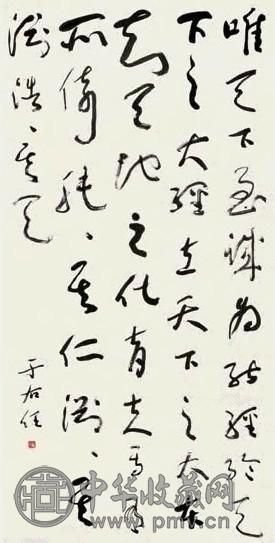 唯天下至誠為能經綸天
下之大經立天下之大本
知天地之化育夫焉有
所倚肫、其仁淵、其
淵浩、其天
于右任
中华收藏网